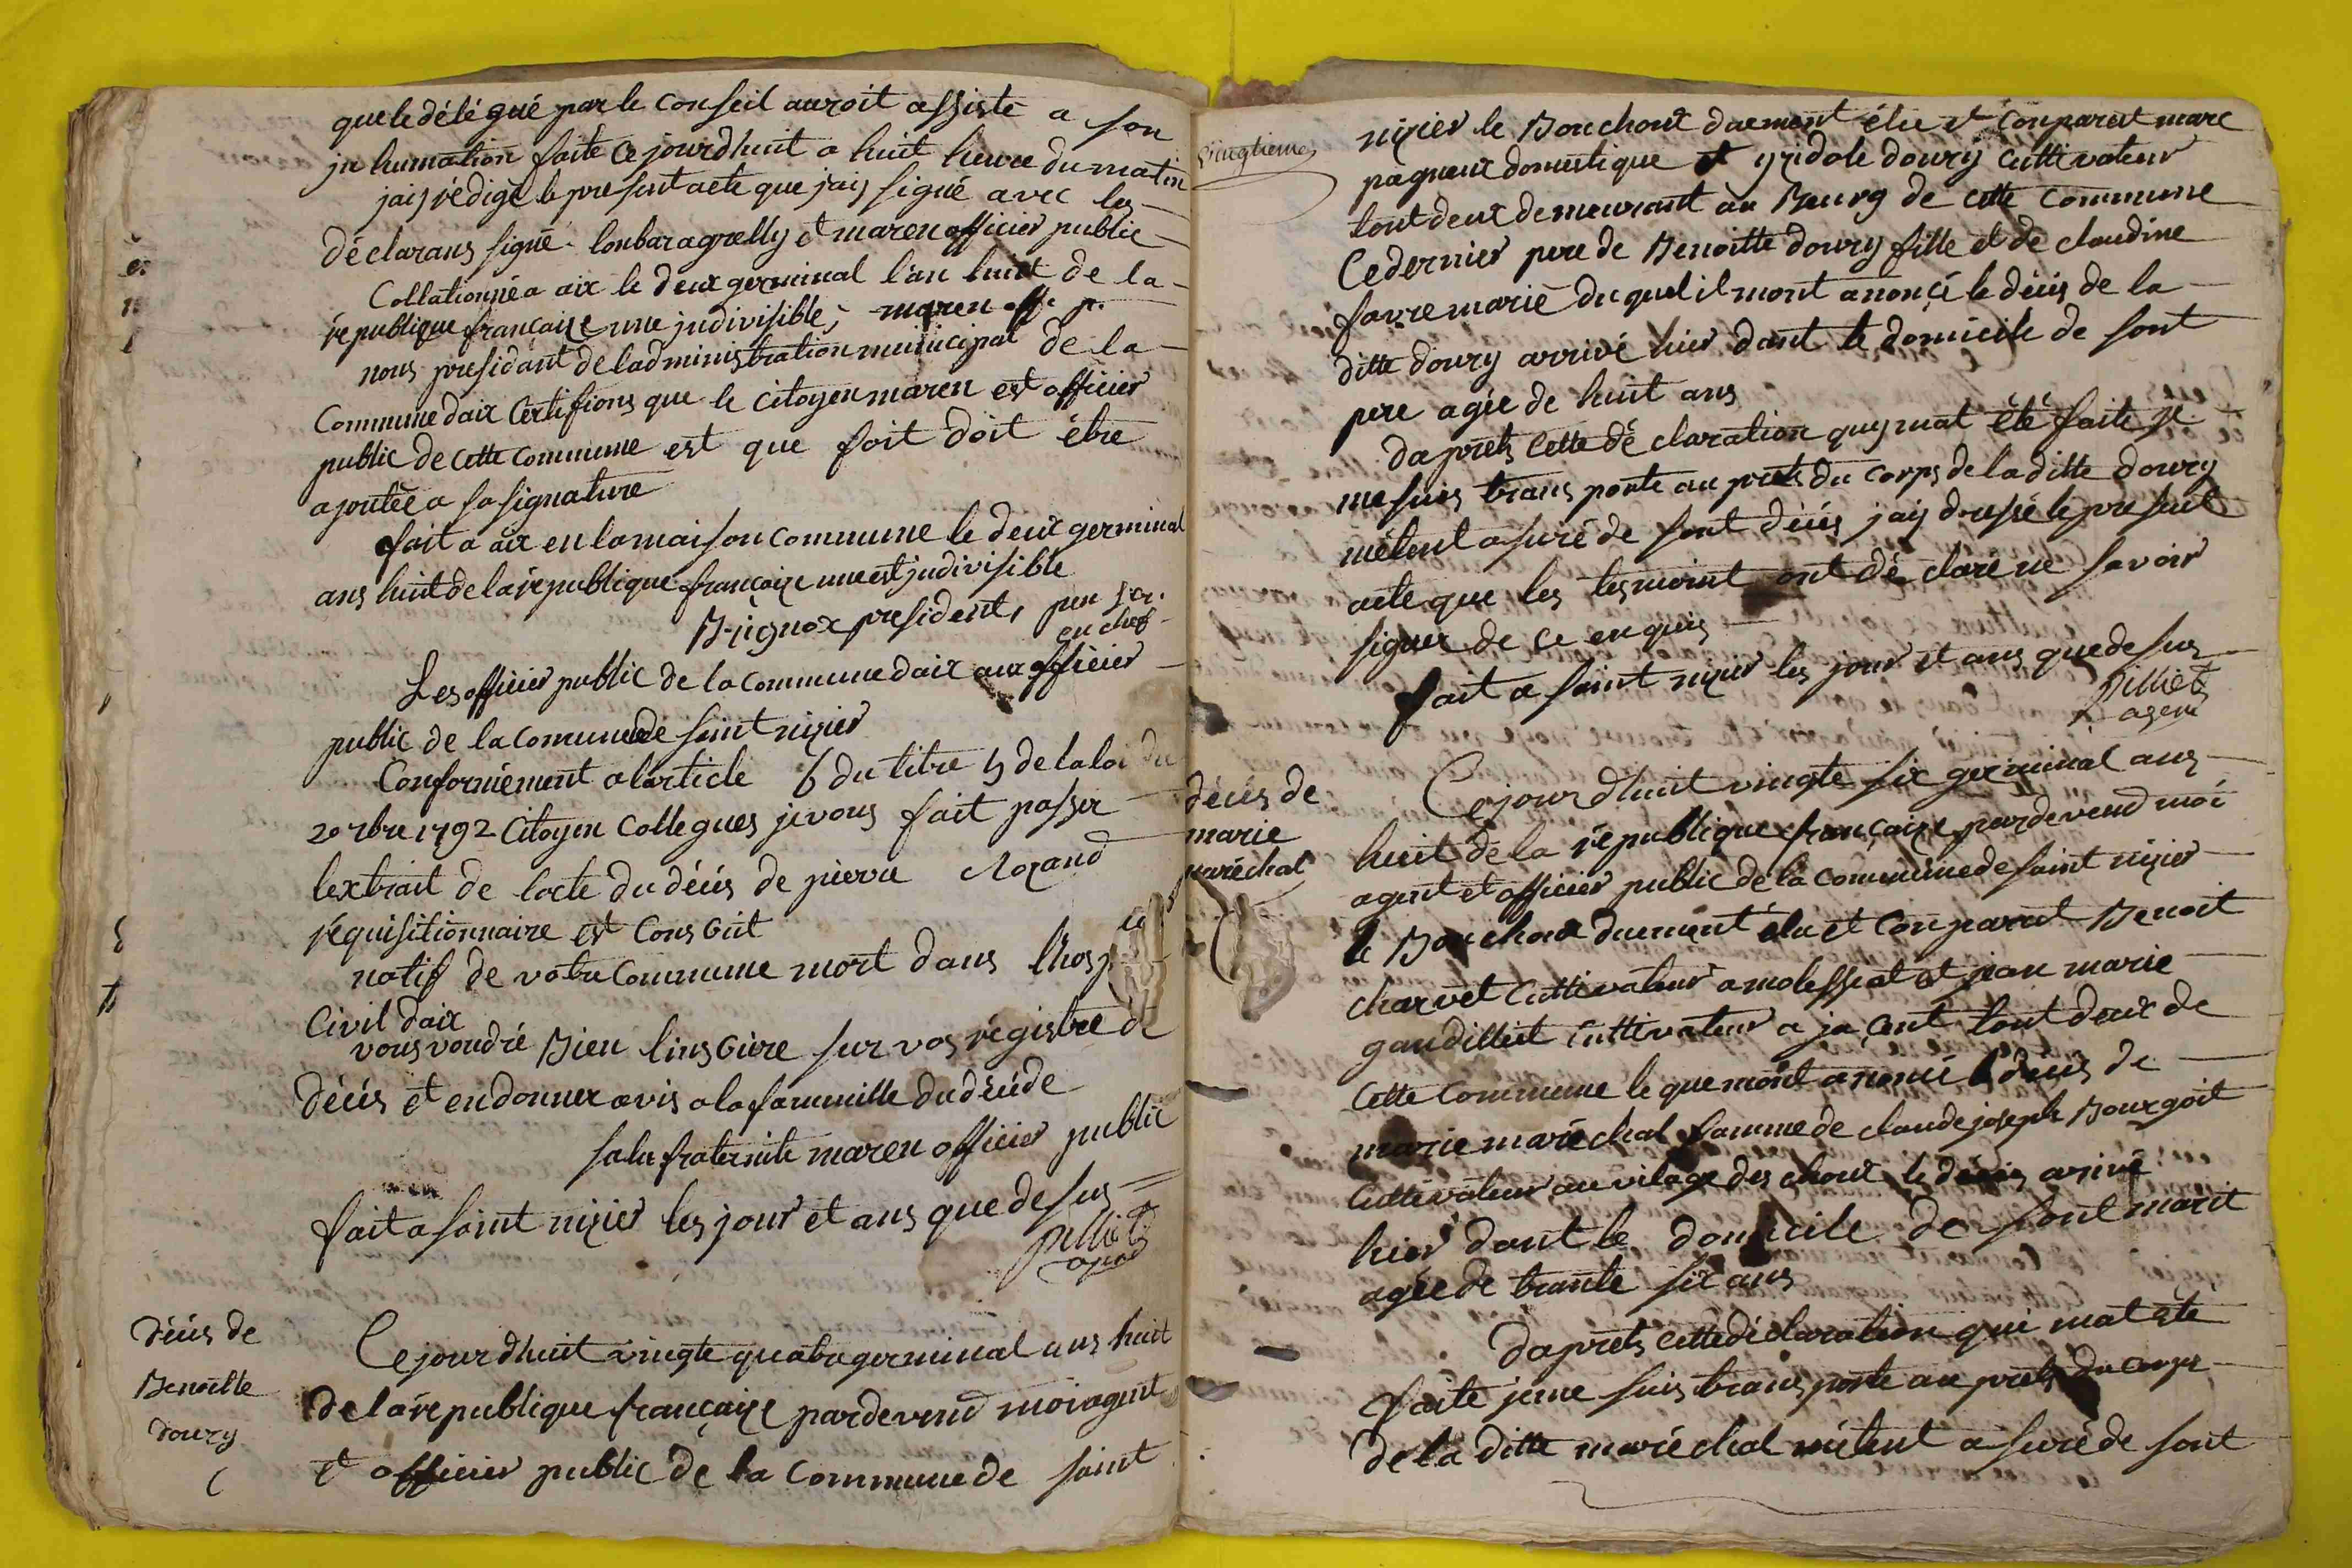 que le délégué par le Conseil auroit assisté a son
jn humation faite ce jourdhuit a huit heure du matin
jaij rédigé le present acte que jaij signé avec les
déclarans signé lonbaragrelly et maren officier public
Collationné a aix le deux germinal l'an huit de la
république françaize une jndivisible; maren offe p.
nous presidant de ladministration municipal de la
Commune daix Certifions que le citoyen maren est officier
public de cette commune est que foit doit être
ajoutée a sa signature
fait a aix en la maison commune le deux germinal
ans huit de la république françaize une est jndivisible
president,
en chef
Les officier public de la commune daix aux officier
public de la comunede saint nizier
Conformément a larticle 6 du titre 5 de la loi du
20 7bre 1792 Citoyen Collegues je vous fait passer
lextrait de lacte du décés de pierre Morand
réquisitionnaire est Conscrit
natif de votre Commune mort dans lhosp
Civil daix
vous voudré Bien linscrire sur vos régistre de
décés et en donner avis a la fammille du décéde
salu fraternite maren officier public
fait a saint nizier les jour et ans que desus
pilliet
agent
Décés de
Benoitte
Doury
Ce jourdhuit vingte quatre germinal ans huit
de la république françaize pardevend moi agent
et officier public de la Commune de saint
Vingtieme
nizier le Bouchout duement élu et Conparest marc
pagneux domestique et gridole doury cultivateur
tout deux demeurant au Bourg de cette Commune
Cedernier pere de Benoitte doury fille et de claudine
favre marié duquel il mont anoncé le décés de la
ditte doury arrivé hier dant le domicile de sont
pere agée de huit ans
daprèts cette dé claration quy mat été faite je
me suis trans porte au prèts du corps de la ditte doury
métent asuré de sont décés jaij dressé le present
acte que les tesmoint ont dé claré ne savoir
signer de ce enquis
fait a saint nizier les jour et ans que desus
pilliet
agent
décés de
marie
maréchal
Ce jourdhuit vingte six germinal ans
huit de la république françaize pardevend moi
agent et officier public de la communede saint nizier
le Bouchoux duement élu et Conparest Benoit
charvet Cultivateur a molessiat et jean marie
gaudilliet Cultivateur a jaçent tout deux de
cette Commune le que mont anoncé le décés de
marie maréchal famme de claude joseph Bourgoit
Cultivateur au vilage des choux le décés arivé
hier dant le domicile de sont marit
agée de trante six ans
daprèts cette déclaration qui mat été
faite je me suis trans porte au prèts du corps
de la ditte maréchal métent a suré de sont